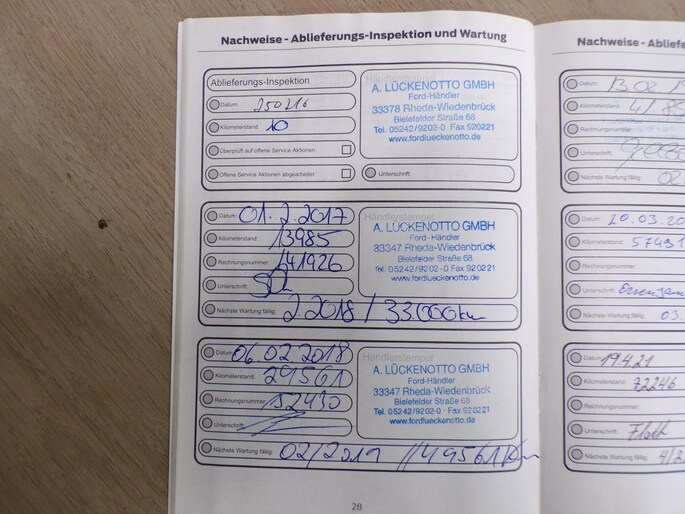 Nachweise - Ablieferungs-Inspektion und Wartung
Ablieferungs-Inspektion
Datum: 250216
Kilometerstand: 10
Überprüft auf offene Service Aktionen:
Offene Service Aktionen abgearbeitet:
A. LÜCKENOTTO GMBH
Ford-Händler
33378 Rheda-Wiedenbrück
Bielefelder Straße 68
Tel. 05242/9202-0 Fax 920221
www.fordlueckenotto.de
Unterschrift:
Datum: 01.2.2017
Kilometerstand: 13985
Rechnungsnummer: 141926
Unterschrift:
Nächste Wartung fällig: 2.2018 / 33000km
Händlerstempel
A. LÜCKENOTTO GMBH
Ford-Händler
33347 Rheda-Wiedenbrück
Bielefelder Straße 68
Tel. 05242/9202-0 Fax 920221
www.fordlueckenotto.de
Datum: 06.02.2018
Kilometerstand: 29561
Rechnungsnummer: 152430
Unterschrift:
Nächste Wartung fällig: 02/2019 //49561Km
Händlerstempel
A. LÜCKENOTTO GMBH
Ford-Händler
33347 Rheda-Wiedenbrück
Bielefelder Straße 68
Tel. 05242/9202-0 Fax 920221
www.fordlueckenotto.de
28
Nachweise - Ablief
Datum: 13.02.19
Kilometerstand:
Rechnungsnummer:
Unterschrift:
Nächste Wartung fällig: 02.
Datum: 20.03.20
Kilometerstand: 57431
Rechnungsnummer:
Unterschrift:
Nächste Wartung fällig: 03
Datum: 19.4.21
Kilometerstand: 72246
Rechnungsnummer:
Unterschrift:
Nächste Wartung fällig: 4/2